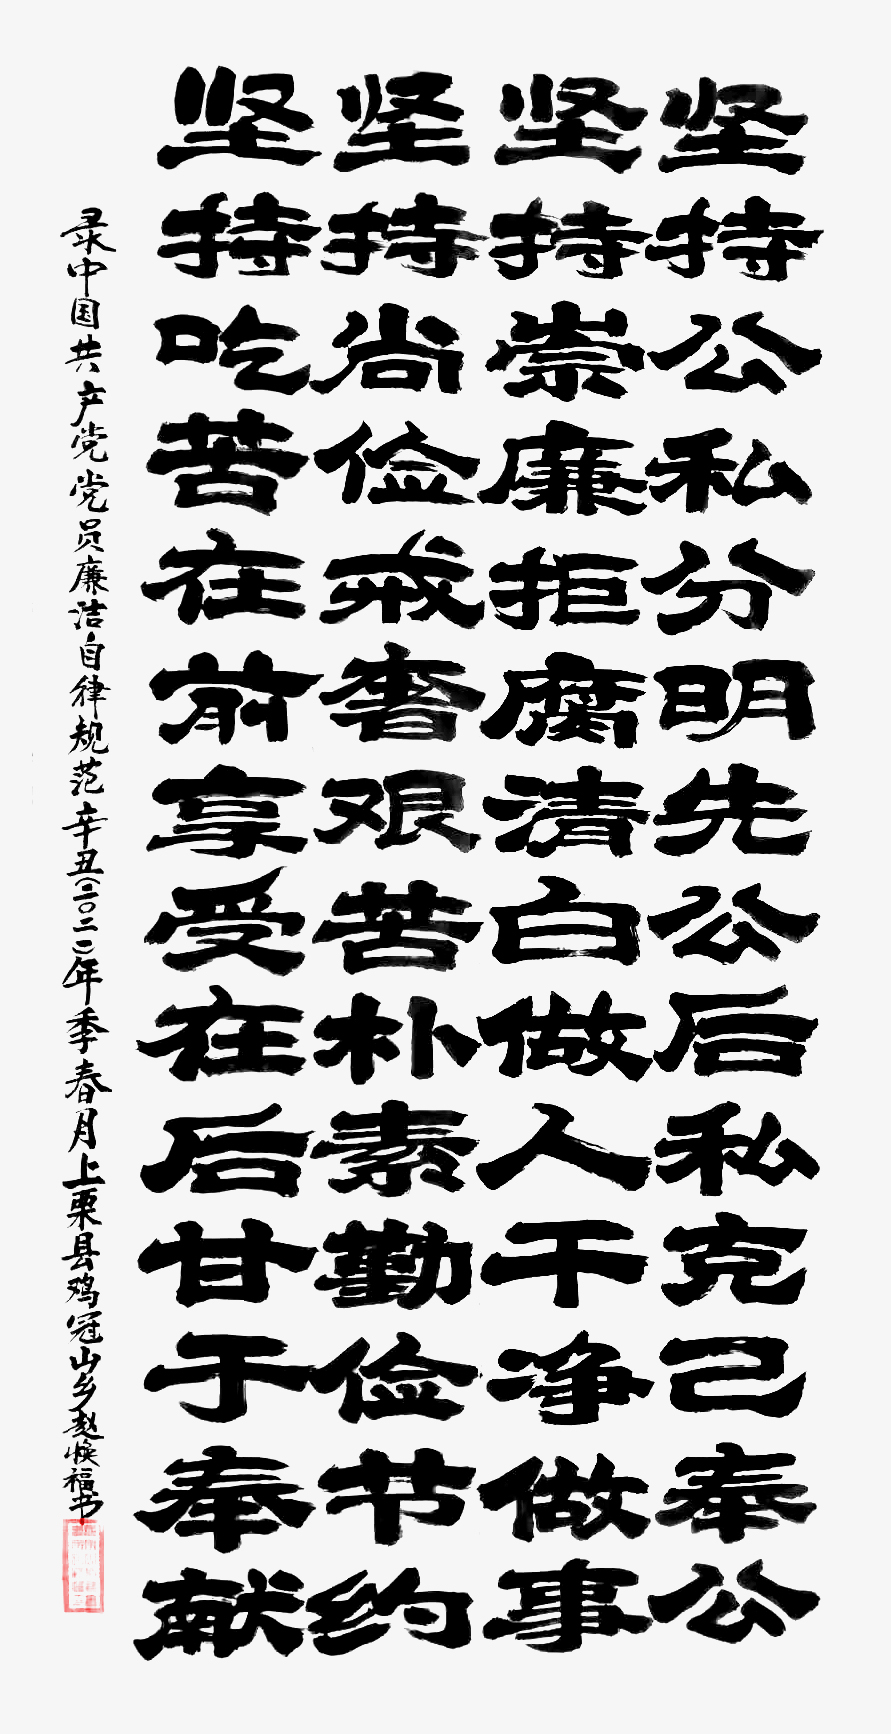 坚持公私分明先公后私克己奉公
坚持崇廉拒腐清白做人干净做事
坚持尚俭戒奢艰苦朴素勤俭节约
坚持吃苦在前享受在后甘于奉献
录中国共产党党员廉洁自律规范辛丑(二〇二一)年季春月上栗县鸡冠山乡赵焕福书